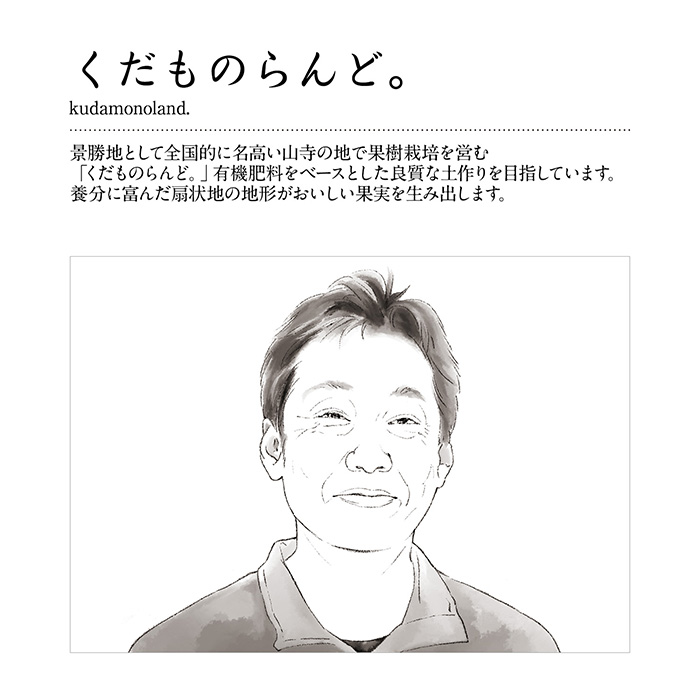 くだものらんど。
kudamonoland.
景勝地として全国的に名高い山寺の地で果樹栽培を営む
「くだものらんど。」有機肥料をベースとした良質な土作りを目指しています。
養分に富んだ扇状地の地形がおいしい果実を生み出します。